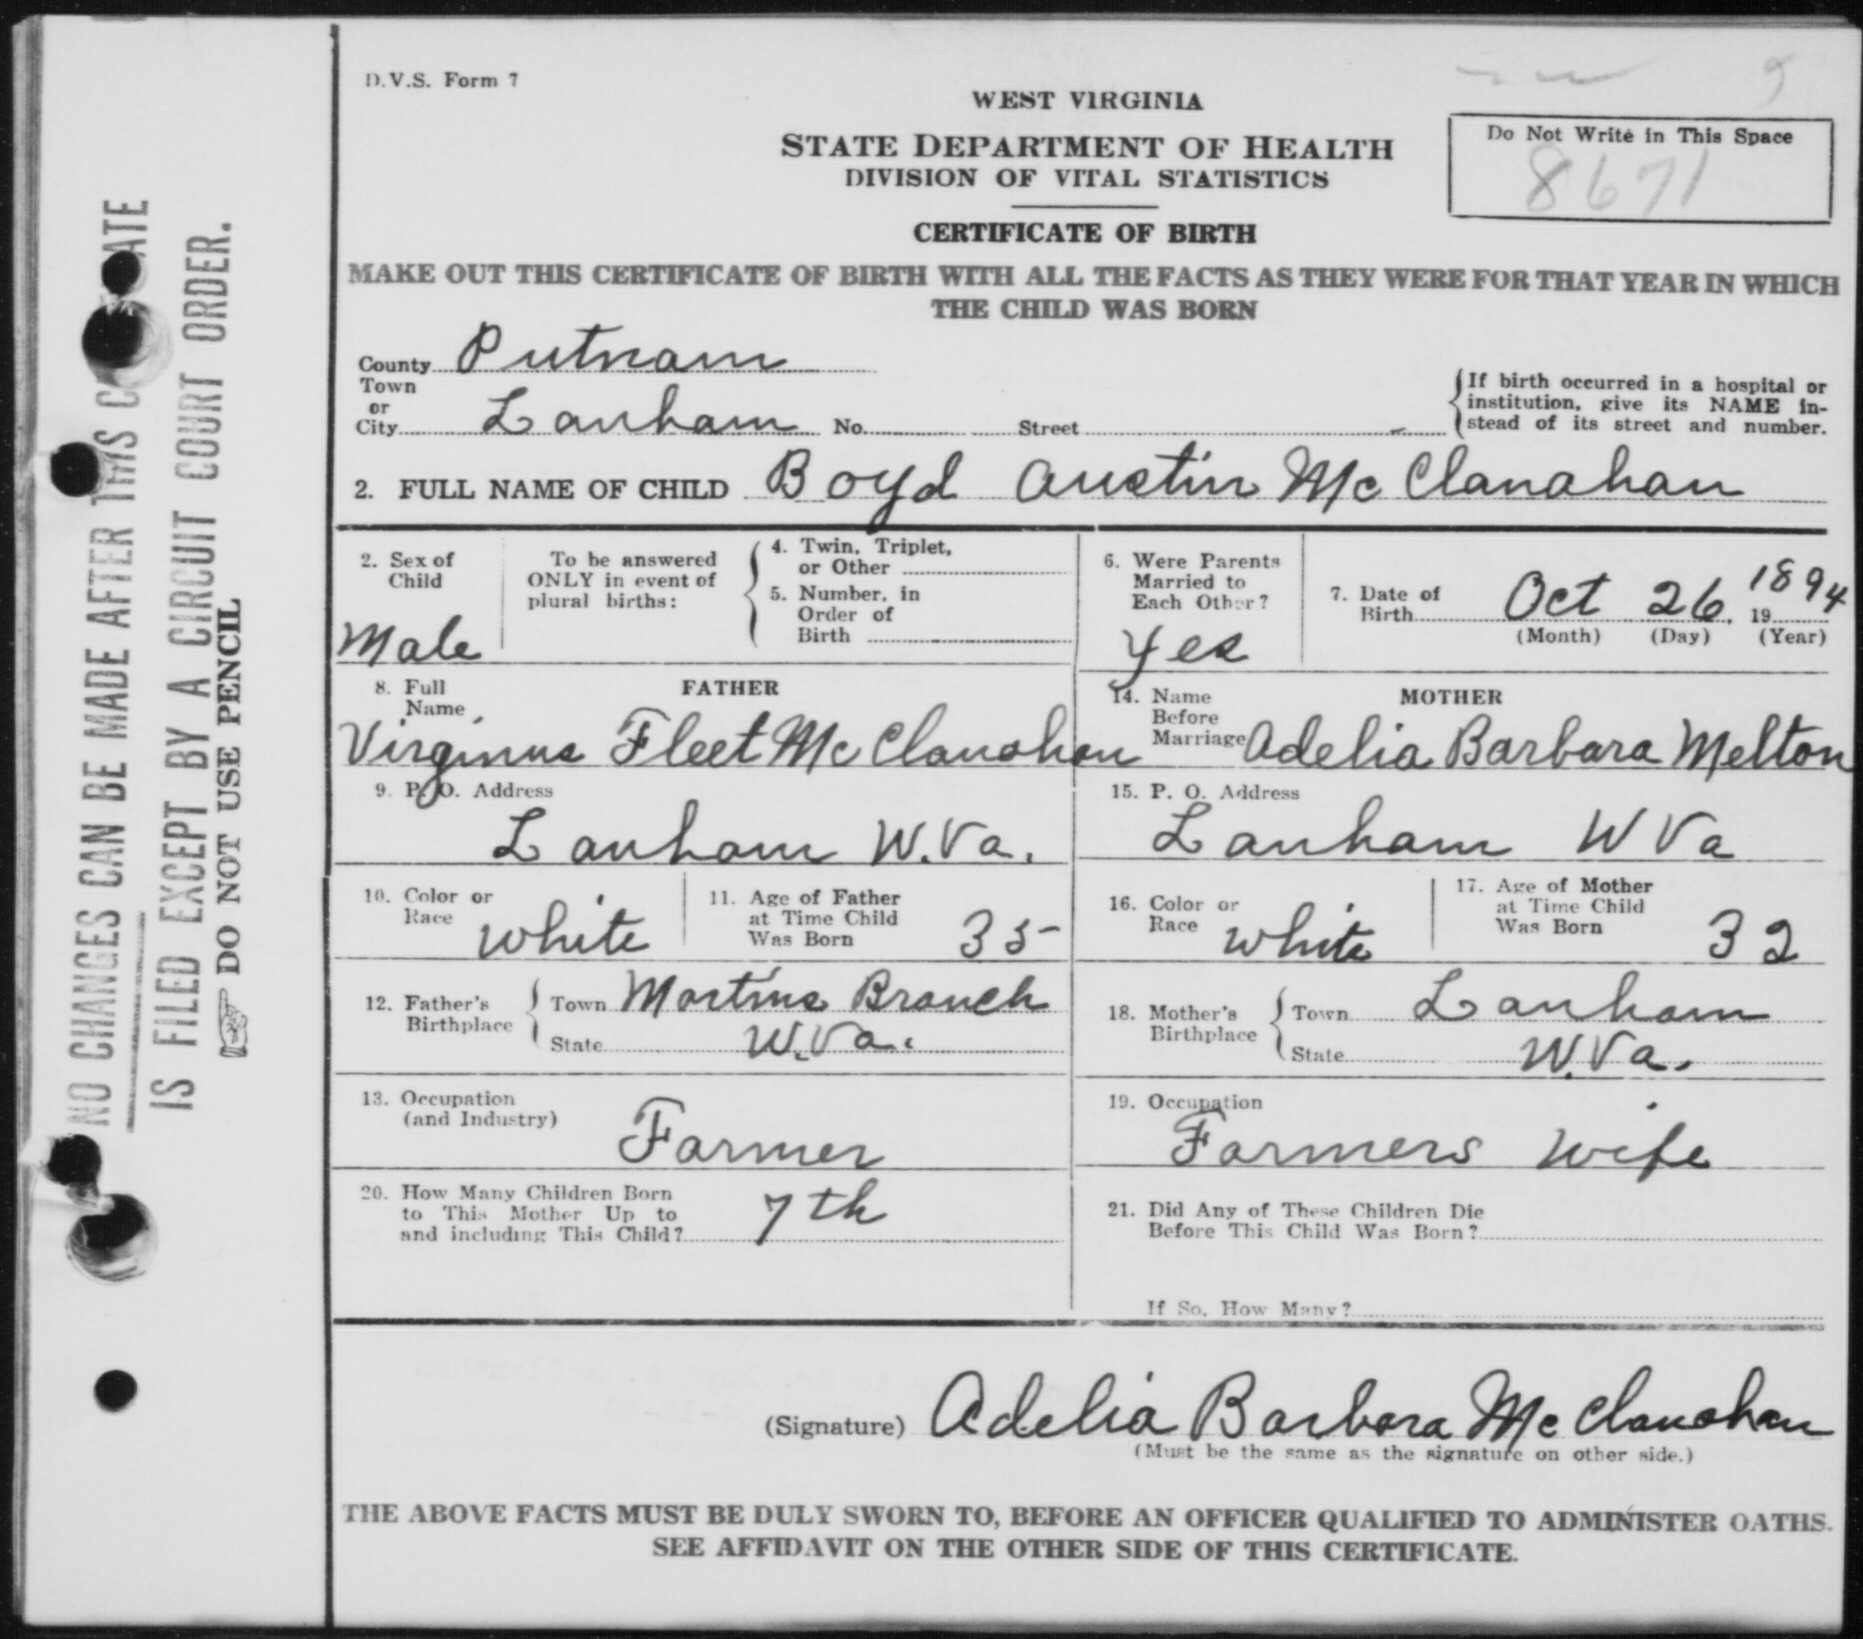 D.V.S. Form 7
WEST VIRGINIA
STATE DEPARTMENT OF HEALTH
DIVISION OF VITAL STATISTICS
Do Not Write in This Space
8671
CERTIFICATE OF BIRTH
MAKE OUT THIS CERTIFICATE OF BIRTH WITH ALL THE FACTS AS THEY WERE FOR THAT YEAR IN WHICH
THE CHILD WAS BORN
County Putnam
Town
or
City Lanham No. Street
If birth occurred in a hospital or
institution, give its NAME in-
stead of its street and number.
2. FULL NAME OF CHILD Boyd Austin McClanahan
2. Sex of
Child
Male
To be answered
ONLY in event of
plural births:
4. Twin, Triplet,
or Other
5. Number, in
Order of
Birth
6. Were Parents
Married to
Each Other?
Yes
7. Date of
Birth Oct 26, 19 1894
(Month) (Day) (Year)
8. Full
Name
FATHER
Virginus Fleet McClanahan
14. Name
Before
Marriage
MOTHER
Adelia Barbara Melton
9. P. O. Address
Lanham W.Va.
15. P. O. Address
Lanham W Va
10. Color or
Race
white
11. Age of Father
at Time Child
Was Born
35
16. Color or
Race
white
17. Age of Mother
at Time Child
Was Born
32
12. Father's
Birthplace
Town Martins Branch
State W.Va.
18. Mother's
Birthplace
Town Lanham
State W.Va.
13. Occupation
(and Industry)
Farmer
19. Occupation
Farmers Wife
20. How Many Children Born
to This Mother Up to
and including This Child? 7th
21. Did Any of These Children Die
Before This Child Was Born?
If So, How Many?
(Signature) Adelia Barbara McClanahan
(Must be the same as the signature on other side.)
THE ABOVE FACTS MUST BE DULY SWORN TO, BEFORE AN OFFICER QUALIFIED TO ADMINISTER OATHS.
SEE AFFIDAVIT ON THE OTHER SIDE OF THIS CERTIFICATE.
NO CHANGES CAN BE MADE AFTER THIS
IS FILED EXCEPT BY A CIRCUIT COURT ORDER.
DO NOT USE PENCIL